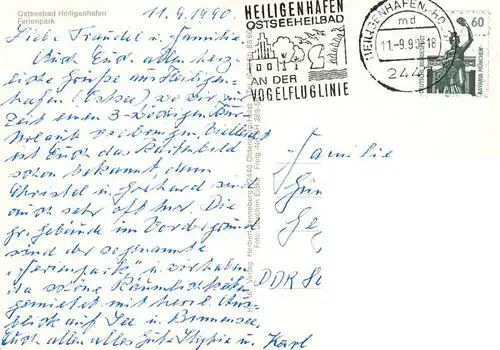 Ostseebad Heiligenhafen
Ferienpark
11.9.1990.
Liebe Traudel u. Familie.
Auch Euch allen herz-
liche Grüße aus Heiligen-
hafen (Ostsee), wo wir zur
Zeit einen 3-wöchigen Kur-
Urlaub verbringen. Vielleicht
ist Euch das Kartenbild
schon bekannt, denn
Christel u. Gerhard sind
auch sehr oft hier. Die
gr. Gebäude im Vordergrund
sind der sogenannte
"Ferienpark" u. wir haben
da schöne Räumlichkeiten
gemietet mit herrl. Aus-
blick auf See u. Binnensee.
Euch allen alles Gute u. Karl
HEILIGENHAFEN
OSTSEEHEILBAD
AN DER
VOGELFLUGLINIE
HEILIGENHAFEN, HO
md
11.-9.90-18
244
60
BAVARIA MÜNCHEN
Familie
Gün
Ge
DDR 80